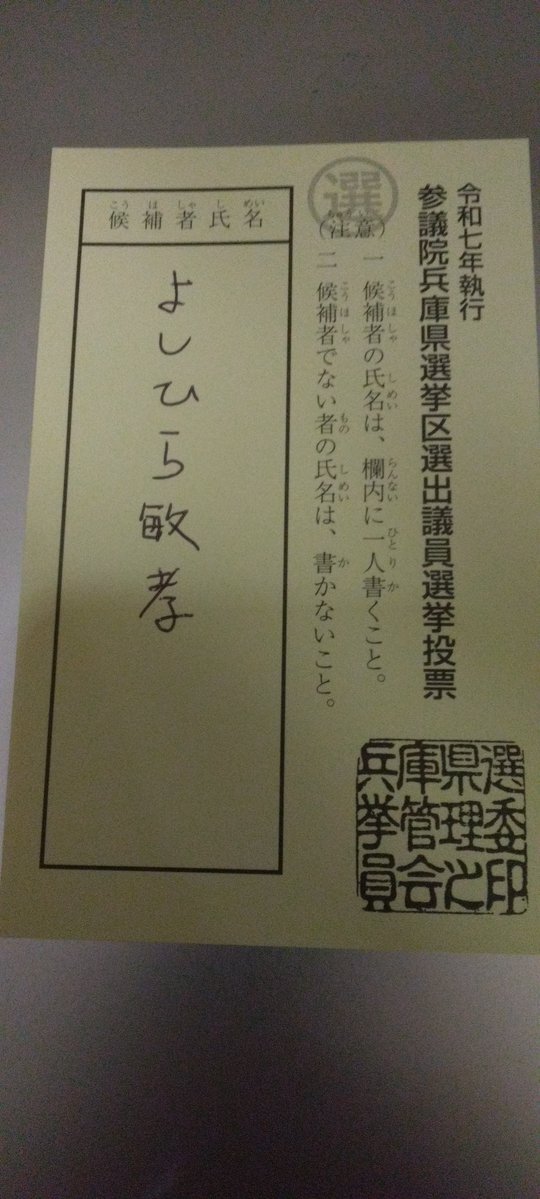 令和七年執行
参議院兵庫県選挙区選出議員選挙投票
選
(注意)
一 候補者の氏名は、欄内に一人書くこと。
二 候補者でない者の氏名は、書かないこと。
候補者氏名
よしひら敏孝
選挙管理委員会之印兵庫県